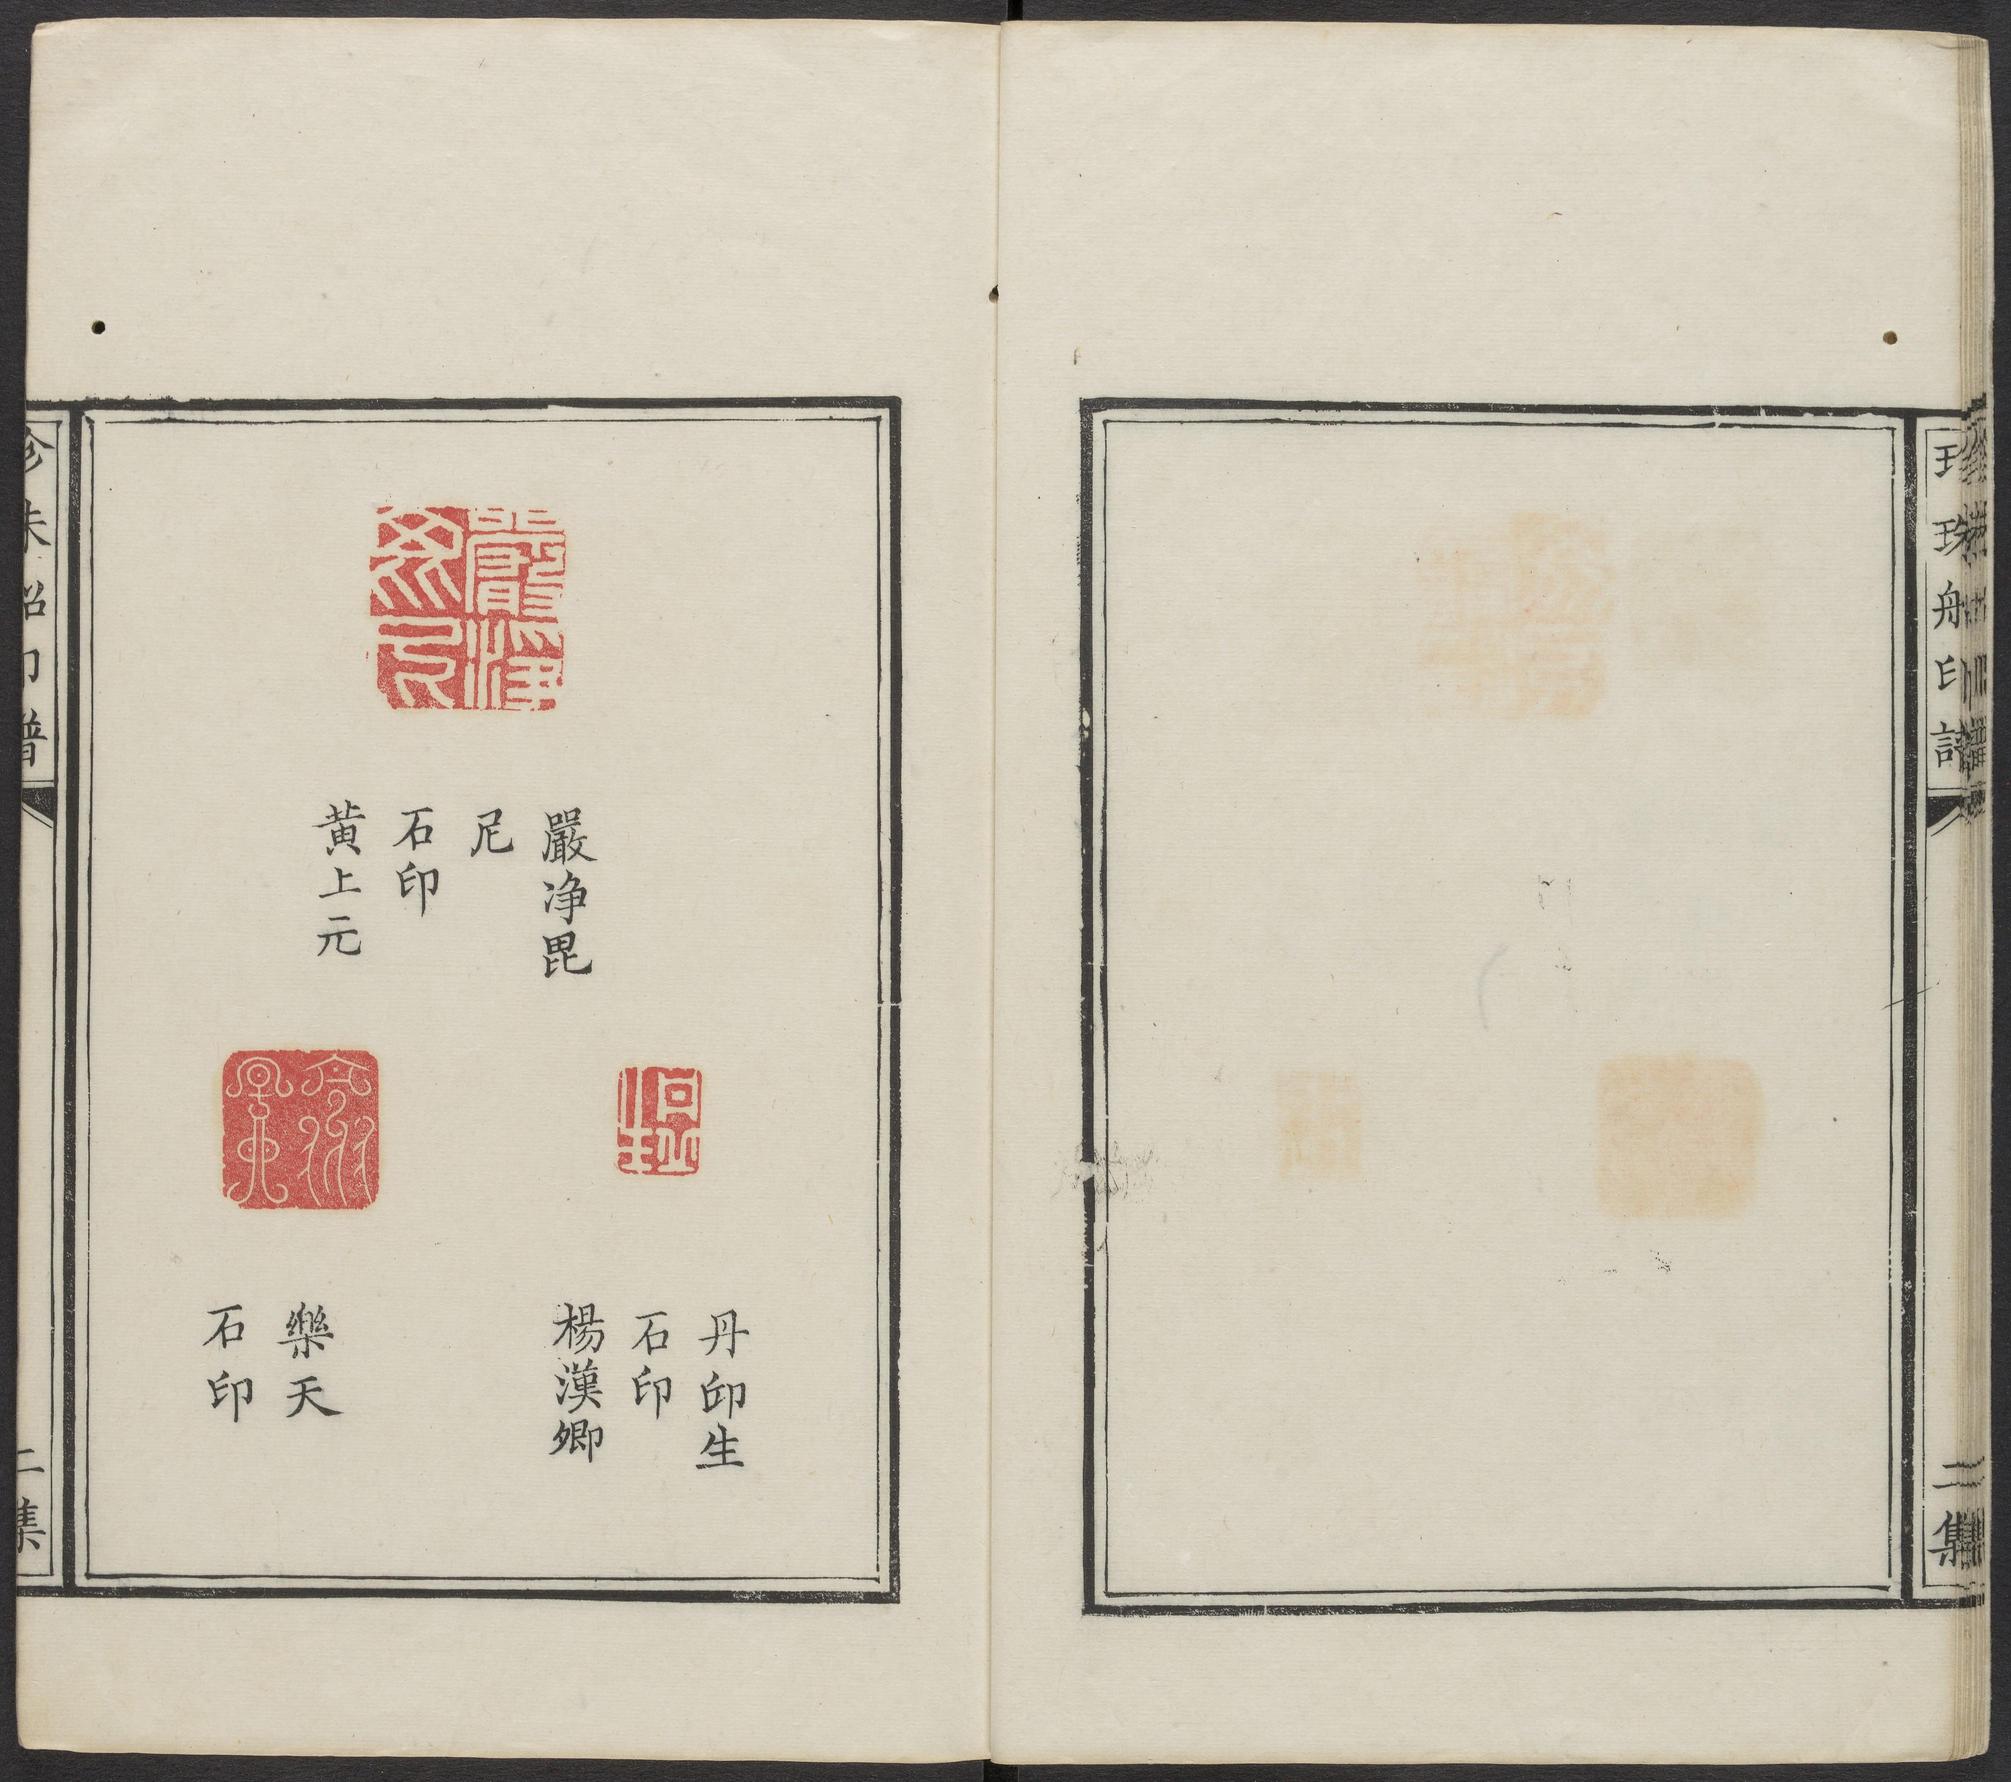 珍珠船印譜
二集
嚴净毘
尼
石印
黄上元
丹邱生
石印
楊漢卿
樂天
石印
珍珠船印譜
二集